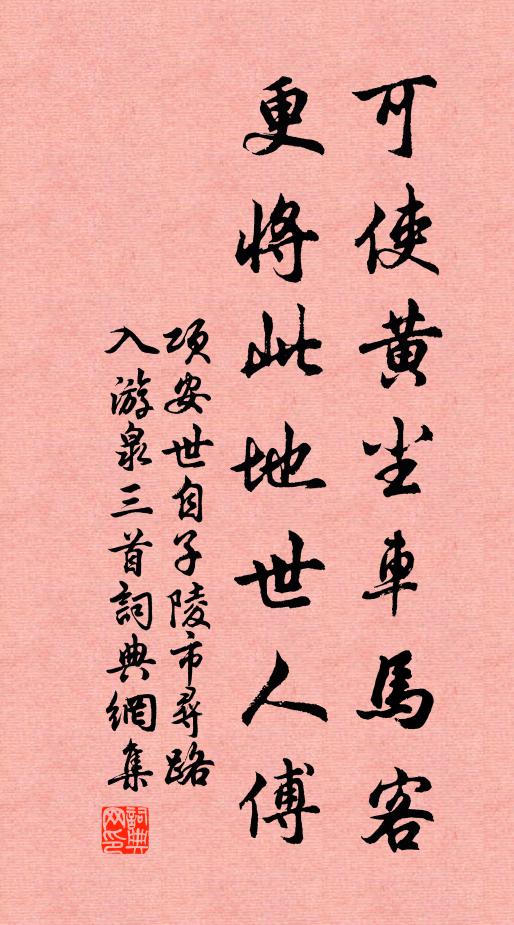 可使黄尘車馬客
更將此地世人傅
項安世自子陵市尋路
入游泉三首詞典網集
詞典
网印